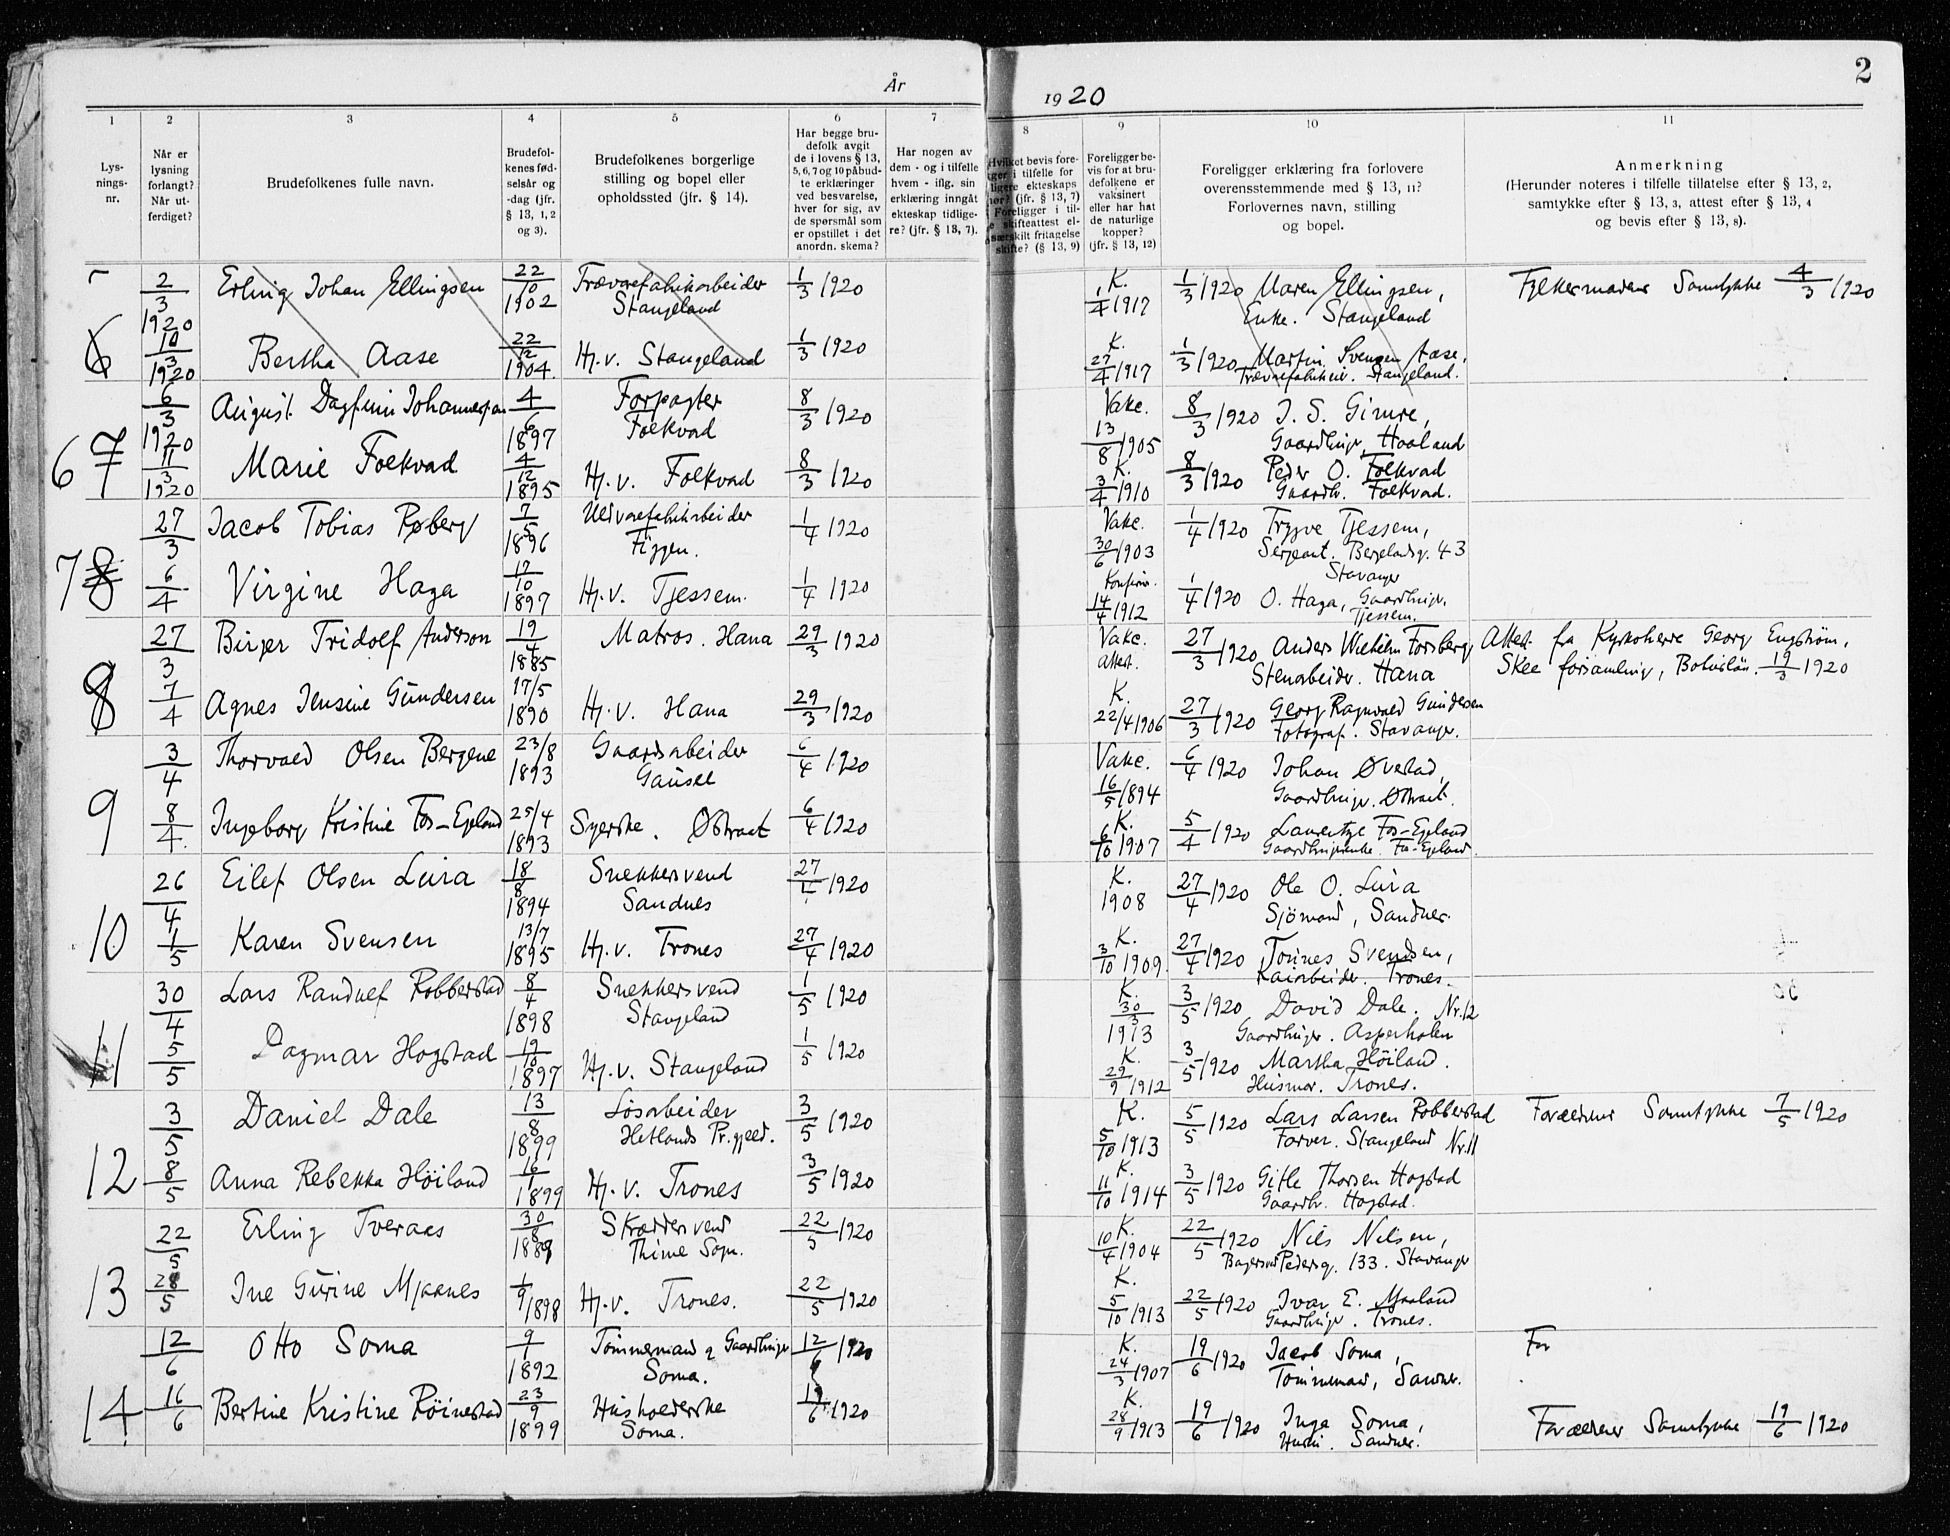 År
1920
2
1
2
3
4
5
6
7
8
9
10
11
Lys-
nings-
nr.
Når er
lysning
forlangt?
Når ut-
ferdiget?
Brudefolkenes fulle navn.
Brudefol-
kenes fød-
selsår og
-dag (jfr.
§ 13, 1, 2
og 3).
Brudefolkenes borgerlige
stilling og bopel eller
opholdssted (jfr. § 14).
Har begge bru-
defolk avgit
de i lovens § 13,
5, 6, 7 og 10 påbud-
te erklæringer
ved besvarelse,
hver for sig, av
de spørsmål som
er opstillet i det
anordn. skema?
Har nogen av
dem - og i tilfelle
hvem - iflg. sin
erklæring inngått
ekteskap tidlige-
re? (jfr. § 13, 7).
Hvilket bevis fore-
ligger i tilfelle for
ekteskaps
(jfr. § 13, 7)
Foreligger i til-
skifteattest el-
særskilt fritagelse
skifte? (§ 13, 9)
Foreligger be-
vis for at bru-
defolkene er
vaksinert
eller har hat
de naturlige
kopper?
(jfr. § 13, 12)
Foreligger erklæring fra forlovere
overensstemmende med § 13, 11?
Forlovernes navn, stilling
og bopel.
Anmerkning
(Herunder noteres i tilfelle tillatelse efter § 13, 2,
samtykke efter § 13, 3, attest efter § 13, 4
og bevis efter § 13, 8).
2/3 1920 Erling Johan Ellingsen 22/10 1902 Trævarefabrikarbeider Stangeland 1/3 1920 K. 1/4 1917 1/3 1920 Maren Ellingsen, Enke. Stangeland Samtykke 4/3 1920
6 10/3 1920 Bertha Aase 22/12 1904. Hj.v. Stangeland 1/3 1920 K. 27/4 1917 1/3 1920 Martin Svensen Aase. Stangeland.
6/3 1920 August Dagfinn Johannessen 4/6 1897 Forpagter Folkvord 8/3 1920 Vakc. 13/8 1905 8/3 1920 J. S. Gimre, Gaardbruger, Haaland
6 7 11/3 1920 Marie Folkvord 4/12 1895 Hj.v. Folkvord 8/3 1920 K. 3/4 1910 8/3 1920 Peder O. Folkvord Gaardb. Folkvord.
27/3 Jacob Tobias Røberg 7/5 1896 Uldvarefabrikarbeider Figgen. 1/4 1920 Vakc. 30/6 1903 1/4 1920 Trygve Tjessem, Sergeant. Bergelandsg. 43 Stavanger
7 8 6/4 Virgine Haga 17/10 1897 Hj.v. Tjessem. 1/4 1920 Konfirm. 14/4 1912 1/4 1920 O. Haga, Gaardbruger. Tjessem.
27/3 Birger Fridolf Anderson 19/4 1885 Matros. Hana 29/3 1920 Vakc. attest. 27/3 1920 Anders Wilhelm Forsberg Stenarbeider. Hana Attest fra Kyrkoherre Georg Engström, Skee församling, Bohuslän. 19/3 1920
8 7/4 Agnes Jensine Gundersen 17/5 1890 Hj.v. Hana 29/3 1920 K. 22/4 1906 27/3 1920 Georg Ragnvald Gundersen Fotograf. Stavanger.
3/4 Thorvald Olsen Bergene 23/8 1893 Gaardsarbeider Gausel 6/4 1920 Vakc. 16/5 1894 6/4 1920 Johan Øvestad, Gaardbruger.
9 8/4 Ingeborg Kristine Fos-Egeland 25/4 1893 Syerske. 6/4 1920 K. 6/10 1907 5/4 1920 Fos-Egeland
26/4 Eilef Olsen Lura 18/8 1894 Snekkersvend Sandnes 27/4 1920 K. 1908 27/4 1920 Ole O. Lura Sjömand, Sandnes.
10 1/5 Karen Svensen 13/7 1895 Hj.v. Trones 27/4 1920 K. 3/10 1909. 27/4 1920 Tönnes Svendsen, Kaiarbeider. Trones.
30/4 Lars Randulf Robberstad 8/4 1898 Snekkersvend Stangeland 1/5 1920 K. 30/3 1913 3/5 1920 David Dale. Nr. 12 Gaardbruger. Asperholen
11 5/5 Dagmar Hogstad 19/6 1897 Hj.v. Stangeland 1/5 1920 K. 29/9 1912 3/5 1920 Martha Höiland. Husmor. Trones.
3/5 Daniel Dale 13/8 1899 Løsarbeider Hetlands Pr.gjeld. 3/5 1920 K. 5/10 1913 5/5 1920 Lars Larsen Robberstad Farver. Stangeland Nr. 11 Forældrenes Samtykke 7/5 1920
12 8/5 Anna Rebekka Höiland 16/1 1899 Hj.v. Trones 3/5 1920 K. 11/10 1914 3/5 1920 Gitle Thorsen Hogstad Gaardb. Hogstad.
22/5 Erling Tveraas 30/8 1889 Skræddersvend Thime Sogn. 22/5 1920 K. 10/4 1904 22/5 1920 Nils Nilsen, Bagersvend Pedersg. 133. Stavanger
13 28/5 Ine Gurine Mjaanes 1/9 1898 Hj.v. Trones. 22/5 1920 K. 5/10 1913 22/5 1920 Ivar E. Maaland Gaardbruger. Trones.
12/6 Otto Soma 9/1 1892 Tømmermand og Gaardbruger Soma. 12/6 1920 K. 24/3 1907 19/6 1920 Jacob Soma, Tömmermand, Sandnes. For
14 16/6 Bertine Kristine Röinestad 23/9 1899 Husholderske Soma. 19/6 1920 K. 28/9 1913 19/6 1920 Inga Soma, Hustru. Sandnes. Forældrenes Samtykke 19/6 1920